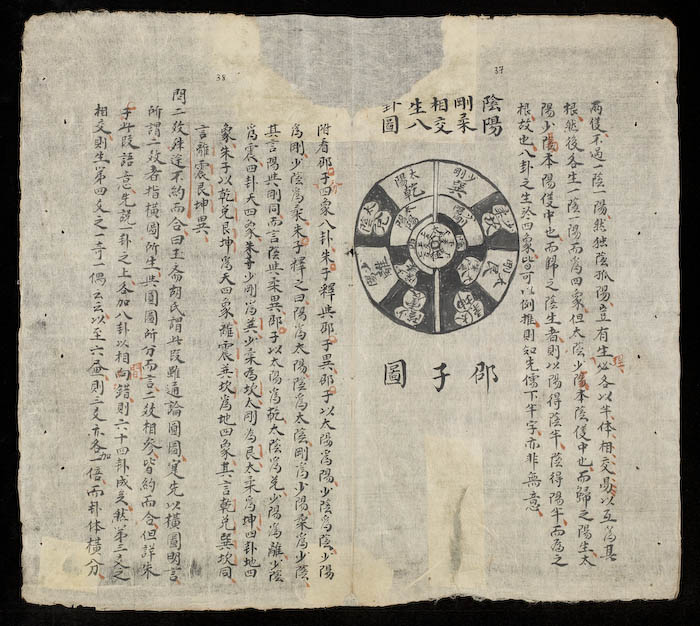 37
兩儀不過一陰一陽然独陰孤陽豈有生必各以半体相交易以互為其
根然後各生一陰一陽而為四象但太陰少陽本陰儀中也而歸之陽生太
陽少陽本陽儀中也而歸之陰生者則以陽得陰半陰得陽半而為之
根故也八卦之生於四象皆可以例推則知先儒下半字亦非無意
陰陽
剛柔
相交
生八
卦圖
太陽
乾
少剛
巽
邵子圖
38
附看邵子四象八卦朱子釋與邵子異邵子以太陽為陽少陰為陰少陽
為剛少陰為柔朱子釋之曰陽為太陽陰為太陰剛為少陽柔為少陰
其言陽與剛同而言陰與柔異邵子以太陽為乾太陰為兌少陽為離少陰
為震四卦天四象少剛為巽少柔為坎太剛為艮太柔為坤四卦地四
象朱子以乾兌艮坤為天四象離震巽坎為地四象其言乾兌巽坎同
言離震艮坤異
問二攷殊途不約而合曰玉斎胡氏謂此段雖通論圓圖寔先以橫圖明言
所謂二攷者指橫圖所生與圓圖所分而言二攷相參皆約而合但詳朱
子此段語意先説一卦之上各加八卦以相間錯則六十四卦成矣然第三爻之
相交則生第四爻之一奇一偶云云以至六画則三爻亦各加一倍而卦体橫分